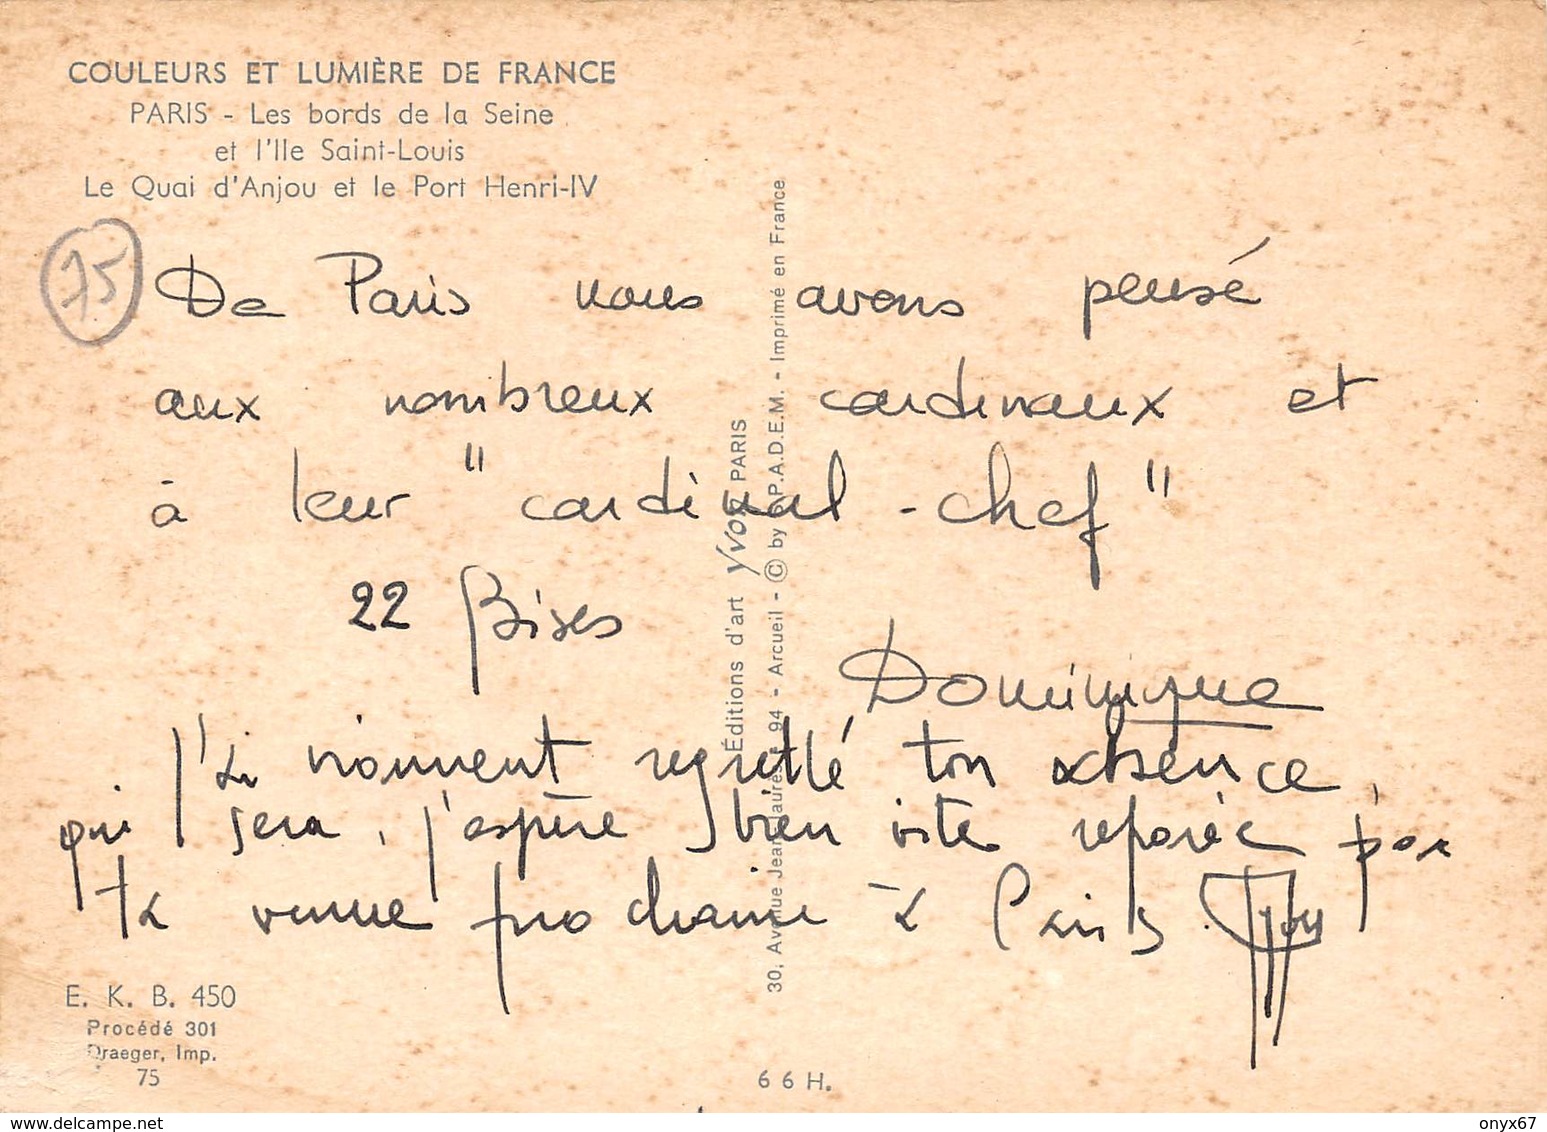 COULEURS ET LUMIÈRE DE FRANCE
PARIS - Les bords de la Seine
et l'Ile Saint-Louis
Le Quai d'Anjou et le Port Henri-IV
75
De Paris nous avons pensé
aux nombreux cardinaux et
à leur "cardinal-chef"
22 Bises
Dominique
J'ai vraiment regretté ton absence,
qui sera, j'espère bien vite réparée par
ta venue prochaine à Paris.
Éditions d'art YVON PARIS
30, Avenue Jean Jaurès 94 - Arcueil - © by P.A.D.E.M. - Imprimé en France
E. K. B. 450
Procédé 301
Draeger, Imp.
75
66 H.
delcampe.net
onyx67